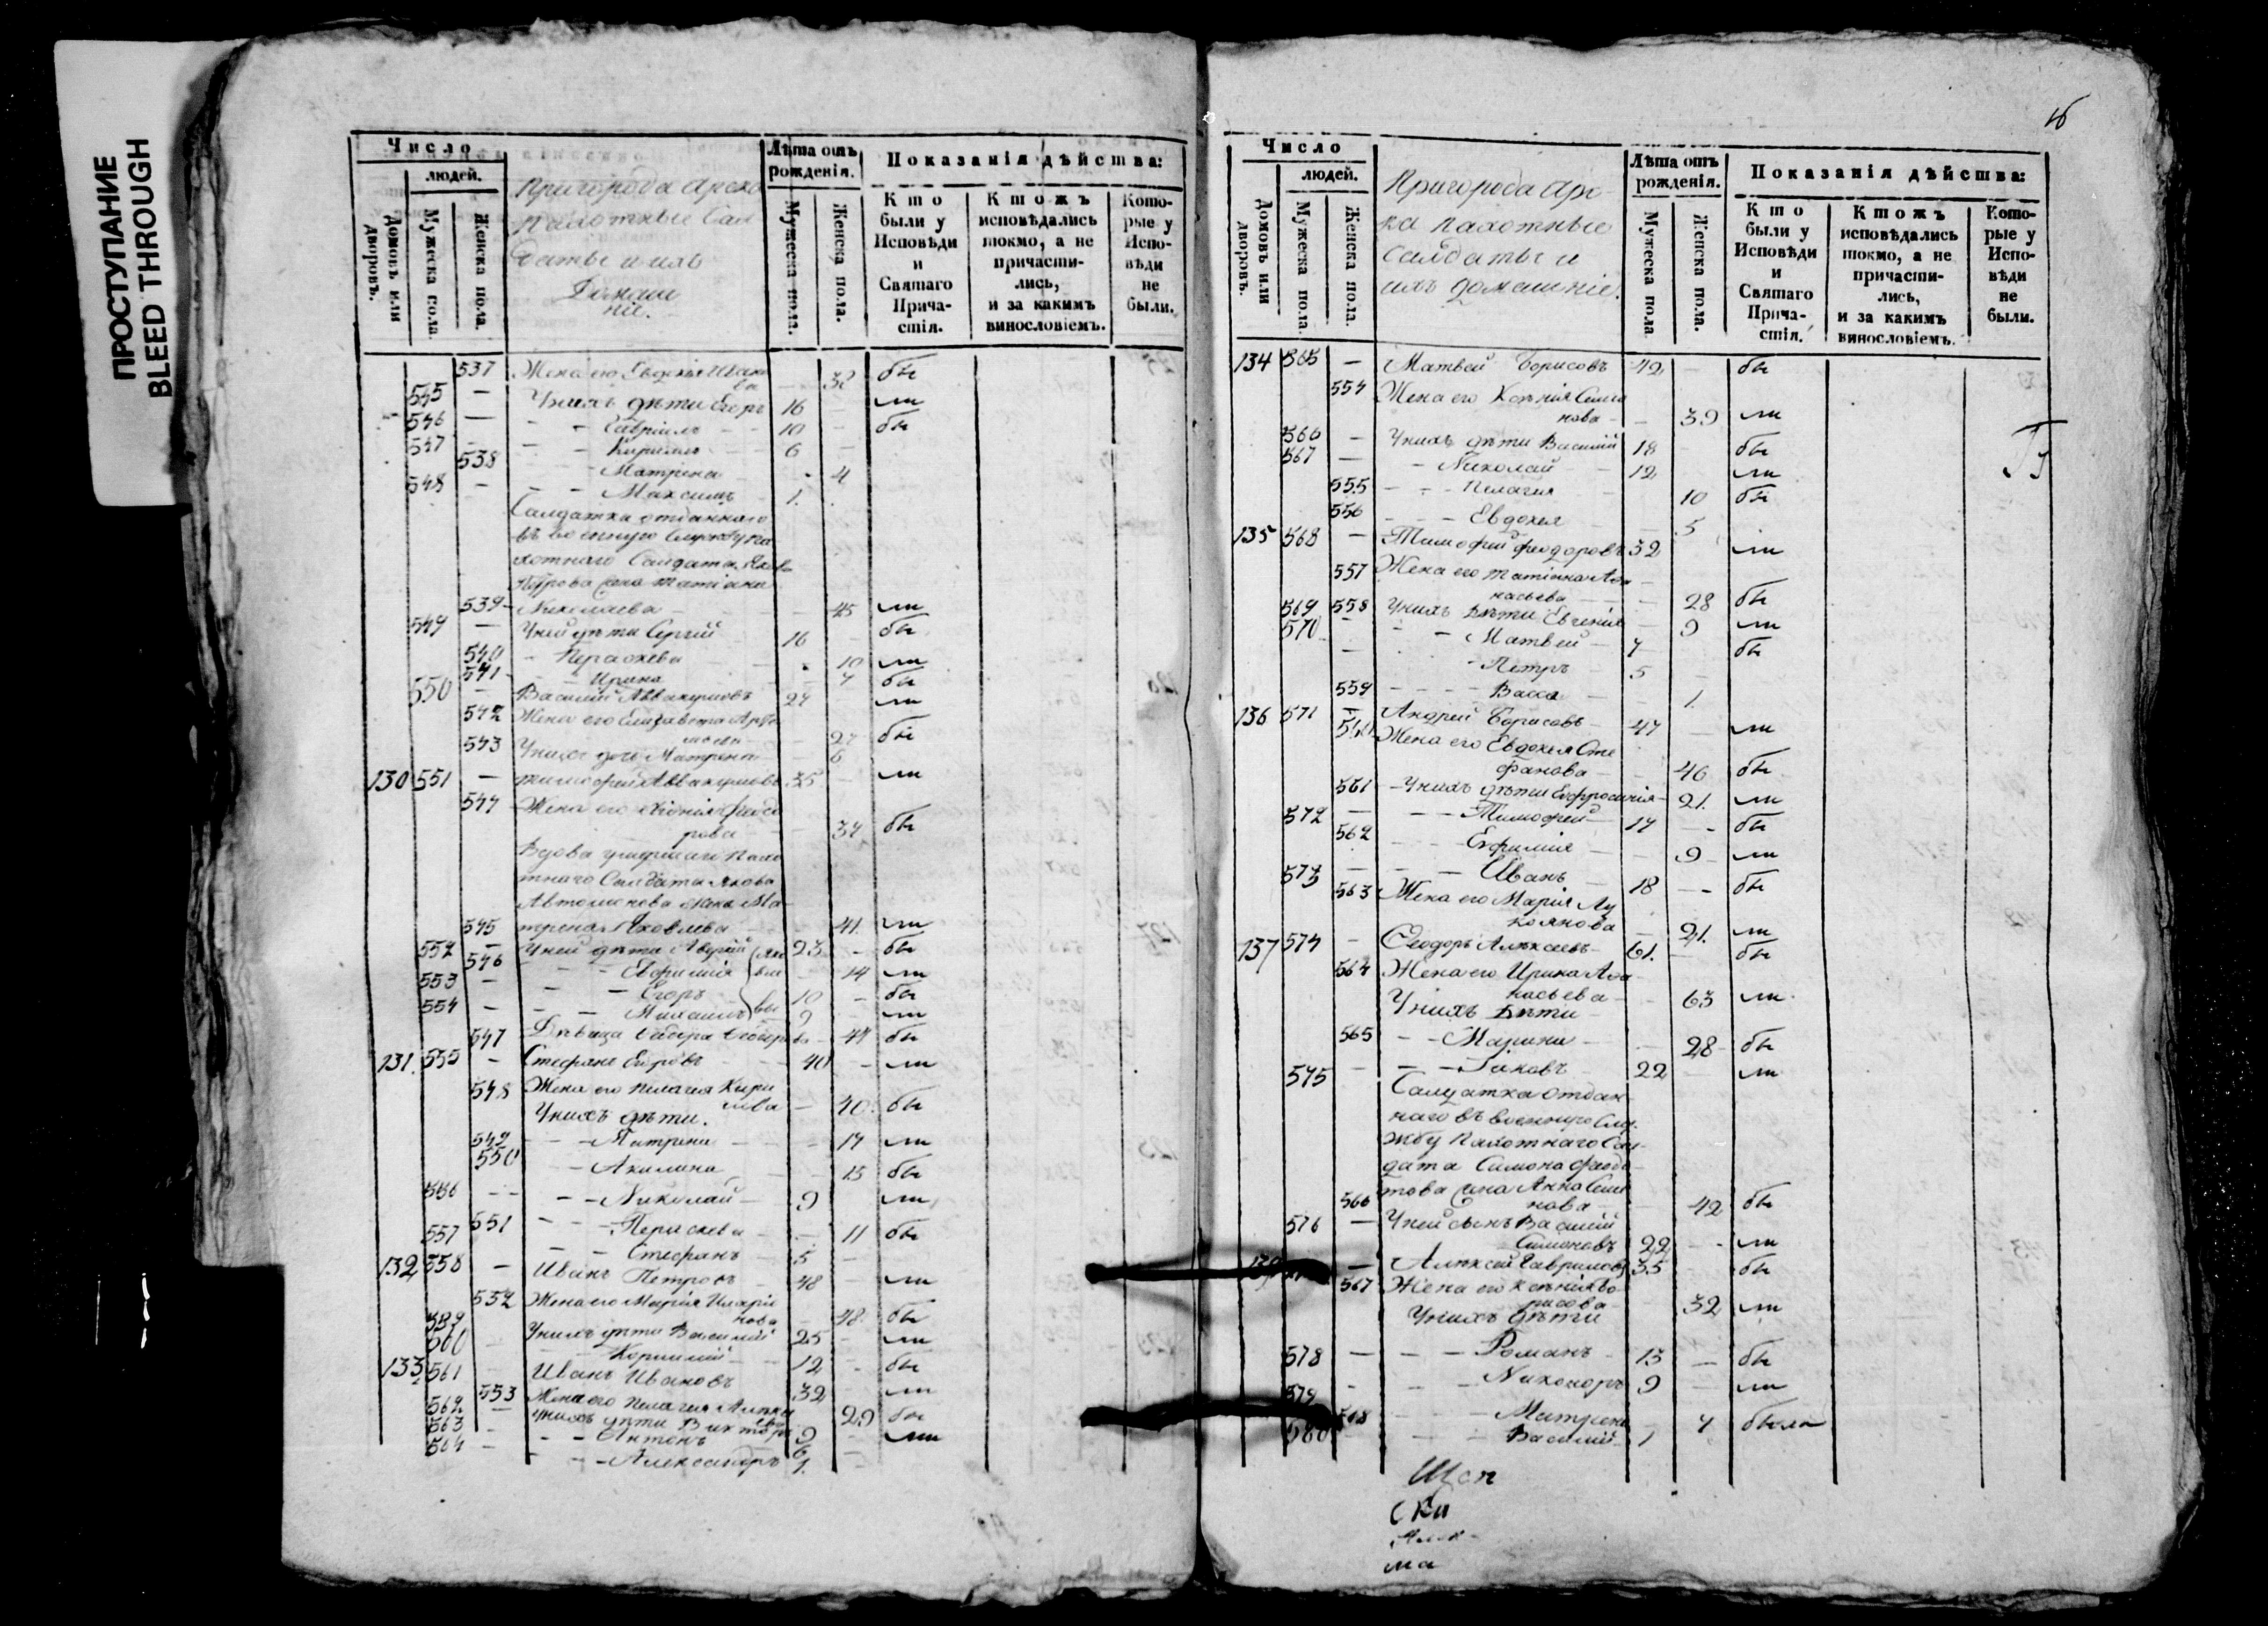 ПРОСТУПАНИЕ
BLEED THROUGH
Число
людей.
Домовъ или дворовъ.
Мужеска пола
Женска пола.
Пригорода Арска
пахотные Сал
даты и ихъ
Домаш
ніе.
Лѣта отъ рожденія.
Мужеска пола.
Женска пола.
Показанія дѣйства:
Кто были у Исповѣди и Святаго Прича-стія.
Ктожъ исповѣдались токмо, а не причасти-лись, и за какимъ винословіемъ.
Кото-рые у Испо-вѣди не были.
537 Жена его Евдокія Ивано
ва 32 бы
545 – У нихъ дѣти Егоръ 16 ли
546 – Гавріилъ 10 – бы
547 – Кирилъ 6 –
538 Матрена 4
548 – Максимъ 1
Салдатка отданнаго
въ военную службу па
хотнаго Салдата Якова
Петрова жена Татіана
539 Николаева 45 ли
549 – У ней дѣти Сергій 16 – бы
540 – Параскева 10 ли
541 – Ирина 7 бы
550 – Василій Аввакумовъ 27 ли
542 Жена его Елизавета
27 бы
543 У нихъ дочь Матрена 6
130 551 – Тимофей Аввакумовъ 35 – ли
544 Жена его Ксенія Ѳеодо
рова 34 бы
Вдова умершаго Пахо
тнаго Салдата Якова
Автомонова жена Ма
545 трена Яковлева 41 ли
552 – У ней дѣти 23 – бы
546 Евфимія 14 ли
553 – Егоръ 10 – бы
554 – Михаилъ 9 – ли
547 Дѣвица 44 бы
131. 555 – Стефанъ Егоровъ 40 – ли
548 Жена его Пелагея Кири
лова – 40 бы
У нихъ дѣти.
549 – Матрена 17 ли
550 – Акилина 13 бы
556 – Николай 9 ли
551 – Параскева 11 бы
557 – Стефанъ 5 –
132 558 – Иванъ Петровъ 48 ли
552 Жена его Марія Иларіо
нова 48 бы
559 У нихъ дѣти Василій 25 – ли
560 – Корнилій 12 – бы
133 561 – Иванъ Ивановъ 32 – ли
553 Жена его Пелагея Алексѣ
ева 29 бы
562 – У нихъ дѣти Викторъ 9 – ли
563 – Антонъ 6 –
564 – Александръ 1.
16
Число
людей.
Домовъ или дворовъ.
Мужеска пола.
Женска пола.
Пригорода Арс
ка пахотные
Салдаты и
ихъ домашніе.
Лѣта отъ рожденія.
Мужеска пола
Женска пола.
Показанія дѣйства:
Кто были у Исповѣди и Святаго Прича-стія.
Ктожъ исповѣдались токмо, а не причасти-лись, и за какимъ винословіемъ.
Кото-рые у Испо-вѣди не были.
134 565 – Матвей Борисовъ 42 – бы
554 Жена его Ксенія Семіо
нова – 39 ли
566 – У нихъ дѣти Василій 18 бы
567 – Николай 12 ли
555 – Пелагея 10 бы
556 – Евдокея 5
135 568 – Тимофей Феодоровъ 32 ли
557 Жена его Татіана Аѳа
насьева – 28 бы
558 У нихъ дѣти Евгенія – 9 ли
569 – Матвей 7 бы
570 – Петръ 5 –
559 – Васса 1.
136 571 – Андрей Борисовъ 47 – ли
Жена его Евдокея Сте
фанова – 46 бы
561 – У нихъ дѣти Ефросинія – 21. ли
572 – Тимофей 17 – бы
562 – Ефимія – 9 ли
573 – Иванъ 18 – бы
563 Жена его Марія Лу
коянова – 21. ли
137 574 – Ѳеодоръ Алексеевъ 61. – бы
564 Жена его Ирина Аѳа
насьева – 63 ли
У нихъ дѣти
565 – Марина – 28 бы
575 – Іаковъ 22 – ли
Салдатка отдан
наго въ военную Слу
жбу Пахотнаго Сал
дата Симона Ѳеодо
това жена Анна Семе
566 нова 42 бы
576 – У ней сынъ Василій
Симоновъ 22 – ли
– Алексей Гавриловъ 35 – бы
567 Жена его Ксенія Бо
рисова 32 ли
У нихъ дѣти
578 – Романъ 13 – бы
579 – Никоноръ 9 – ли
568 – Матрена 4 была
580 – Василій 1